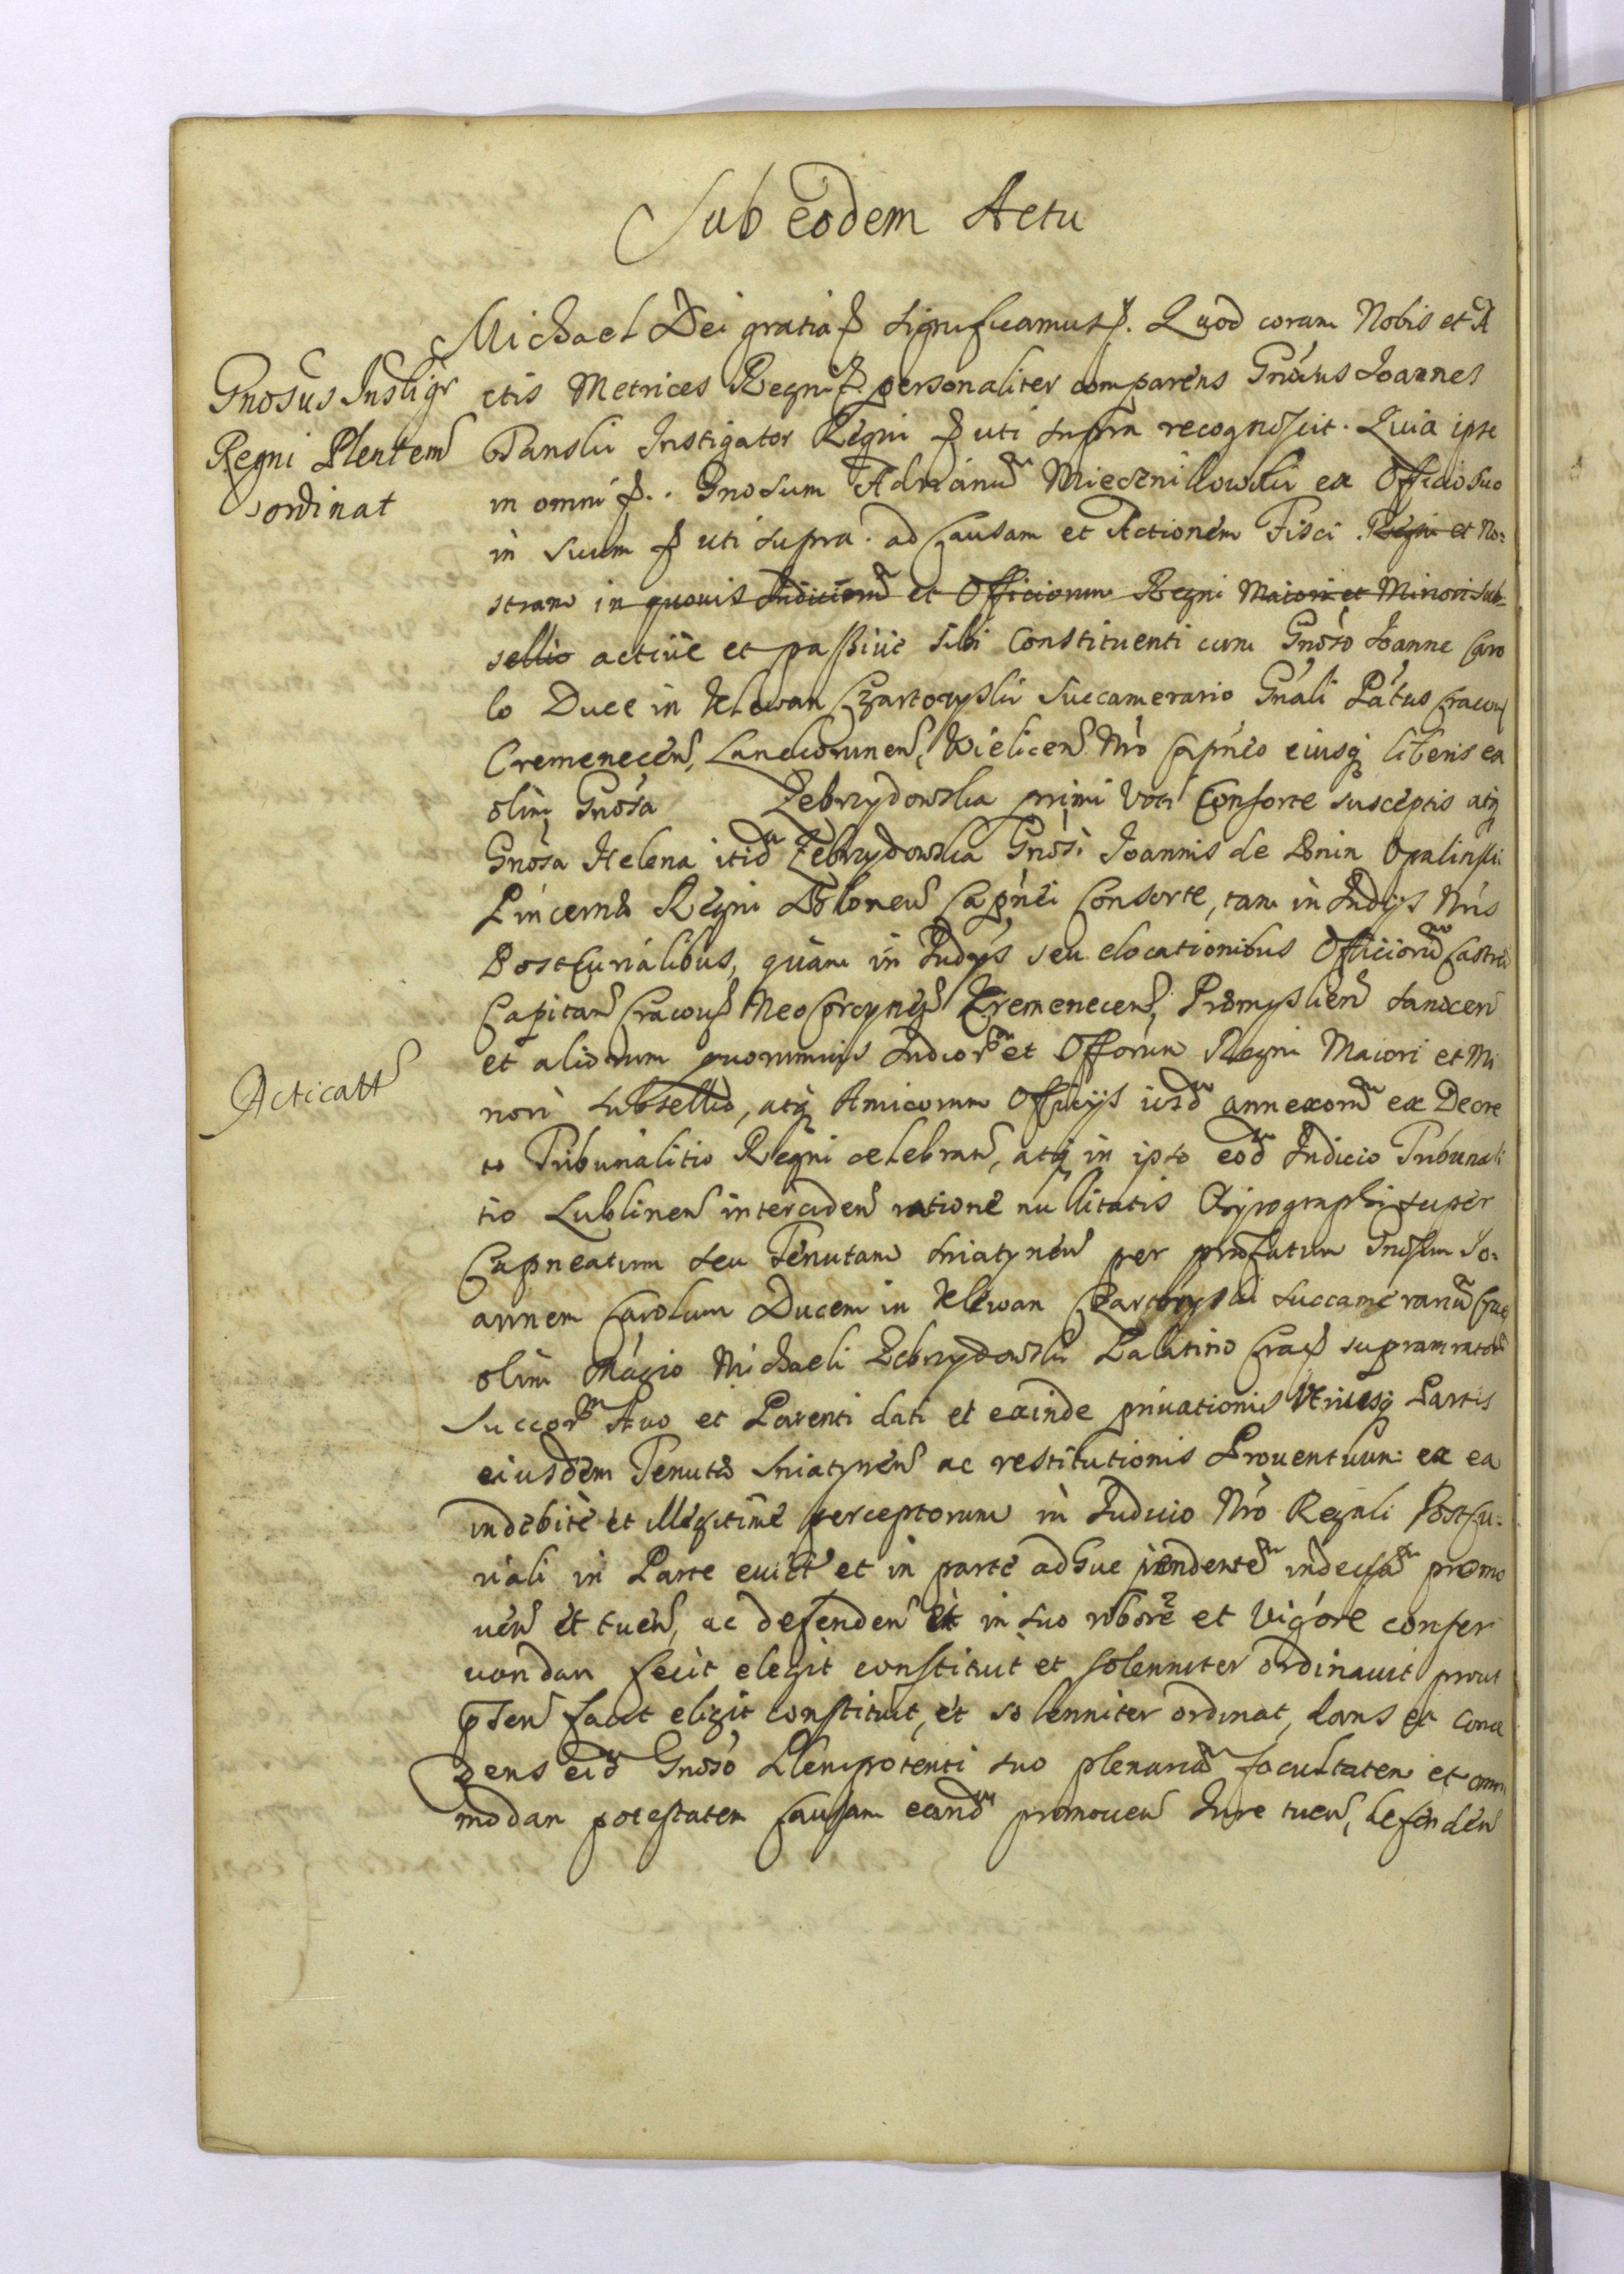 Sub eodem Actu
Michael Dei gratia significamus. Quod coram Nobis et A
Gnosus Instigr
Regni Plentem
ordinat
ctis Metrices Regni personaliter comparens Gnosus Joannes
Tanski Instigator Regni uti supra recognoscit. Quia ipse
in omni Gnosum Adrianu Miecznikowski ex Officio suo
in suum uti supra. ad Causam et Actionem Fisci. Regni et No:
stram in quovis Judiciorum et Officiorum Regni Maiori et Minori Sub-
sellio active et passive sibi Constituenti cum Gnoso Joanne Caro
lo Duce in Klewan Czartoryski Succamerario Gnali Patus Cracov
Cremenecen, Landcorunen, Wielicen Nro Capneo eiusq liberis ex
olim Gnosa Zebrzydowska primi voti Consorte susceptis atq
Gnosa Helena itid Zebrzydowska Gnosi Joannis de Bnin Opalinski
Pincernæ Regni Polonen Capnei Consorte, tam in Judys Nris
PostCurialibus, quam in Judys seu elocationibus Officioru Castren
Capitan Cracov Neo Corcynen Cremenecen, Premyslien Sanocen
et aliorum quorumvis Judior et Offorum Regni Maiori et Mi
Acticatt
nori subsellio, atq Amicorum Officijs iisd annexoru ex Decre
to Tribunalitio Regni celebran, atq in ipso eod Judicio Tribunali
tio Lublinen interceden ratione nullitatis Chyrographi super
Capneatum seu Tenutam Sniatynen per præfatum Gnosum Jo-
annem Carolum Ducem in Klewan Czartoryski Succamerariu Crac
olim Magco Michaeli Zebrzydowski Palatino Crac supramrator
Succor Avo et Parenti dati et exinde privationis Utriusq Partis
eiusdem Tenutæ Sniatynen ac restitutionis Proventuum ex ea
indebite et illegitime perceptorum in Judicio Nro Regali PostCu-
riali in Parte evict et in parte adhuc pendente indecisa promo
ven et tuen, ac defenden et in suo robore et vigore conser
vandan fecit elegit constituit et solenniter ordinavit prout
pnsen facit eligit constituit, et solenniter ordinat, dans et conce
dens eid Gnoso Plenipotenti suo plenaria facultatem et omni
modam potestatem Causam eand promoven Jure tuen, defenden